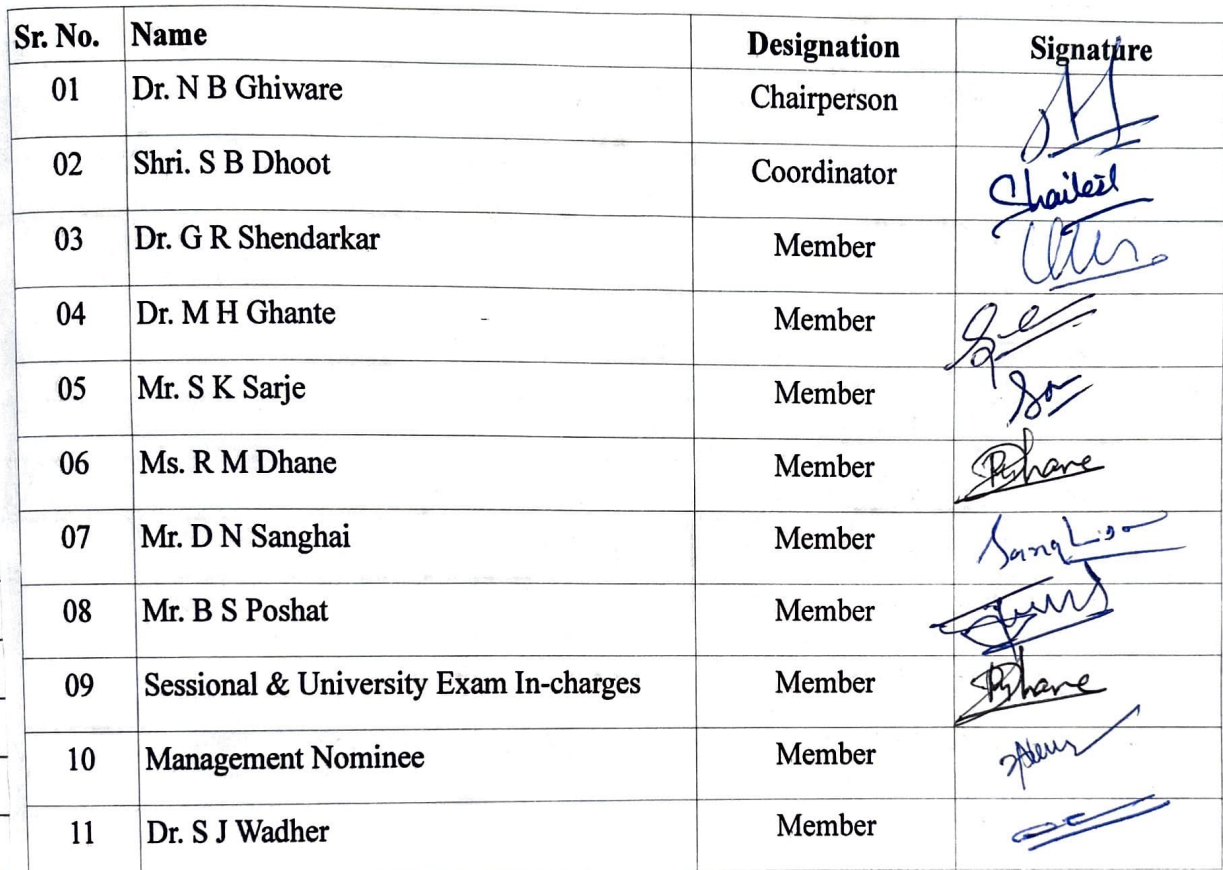 Sr. No. Name Designation Signature
01 Dr. N B Ghiware Chairperson
02 Shri. S B Dhoot Coordinator Shailesh
03 Dr. G R Shendarkar Member
04 Dr. M H Ghante Member
05 Mr. S K Sarje Member
06 Ms. R M Dhane Member RDhane
07 Mr. D N Sanghai Member
08 Mr. B S Poshat Member
09 Sessional & University Exam In-charges Member RDhane
10 Management Nominee Member
11 Dr. S J Wadher Member